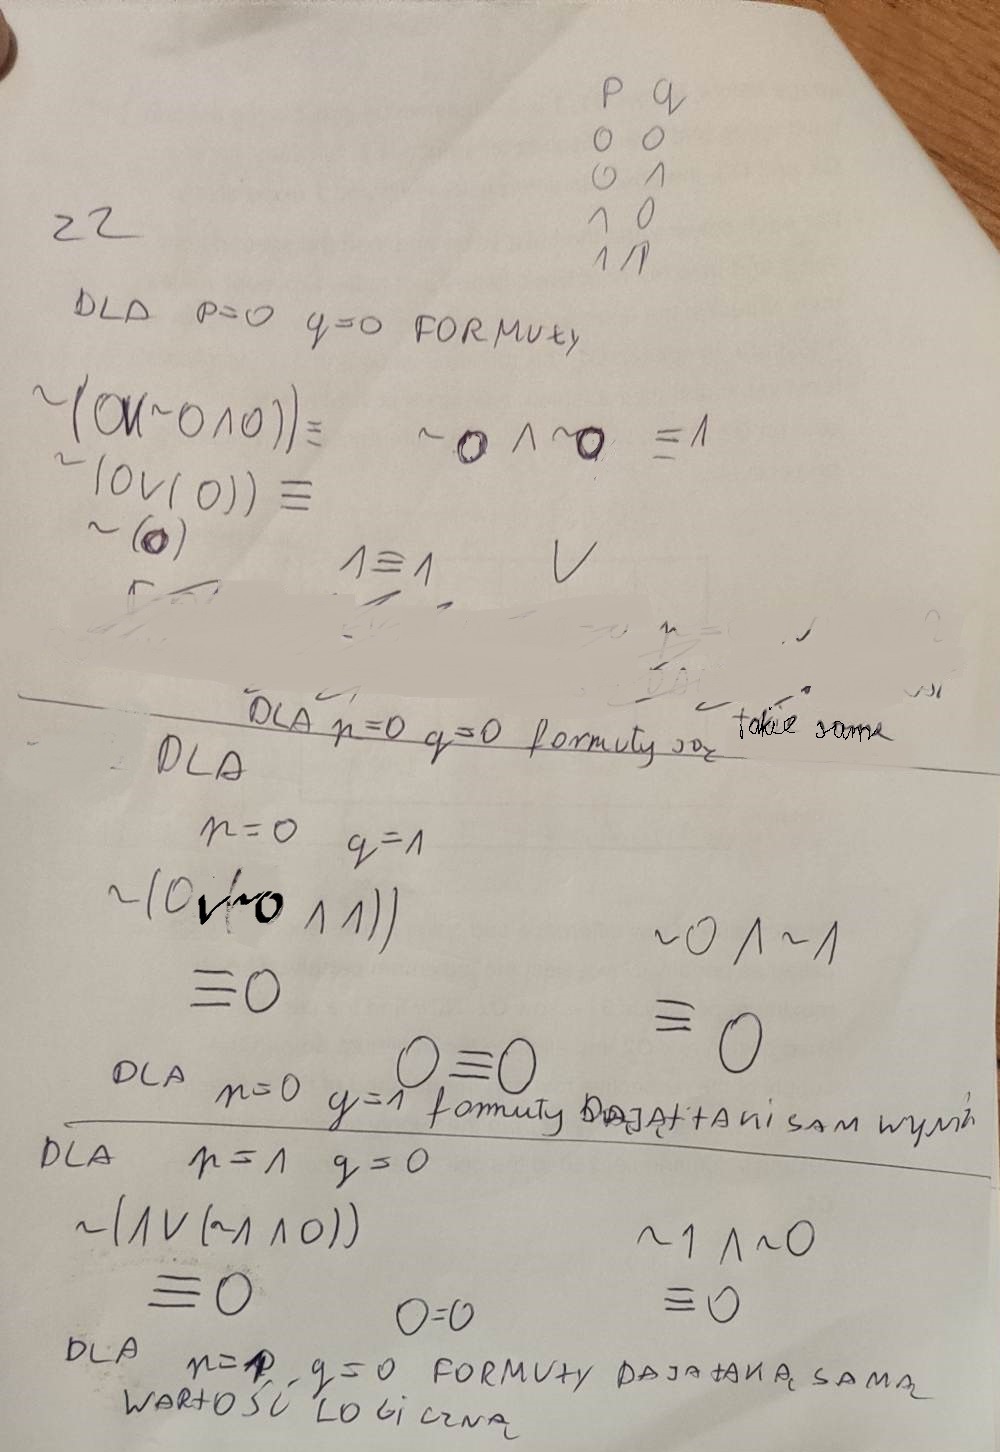 p q
0 0
0 1
1 0
1 1
22
DLA p=0 q=0 FORMUŁY
~(0V(~0∧0))≡ ~0 ∧ ~0 ≡1
~(0V(0)) ≡
~(0)
1≡1 V
DLA p=0 q=0 formuły są takie same
DLA
p=0 q=1
~(0V(~0 ∧ 1)) ~0 ∧ ~1
≡0 ≡ 0
0≡0
DLA p=0 q=1 formuły DAJĄ TAKI SAM WYNIK
DLA p=1 q=0
~(1V(~1∧0)) ~1 ∧ ~0
≡0 0=0 ≡0
DLA p=1 q=0 FORMUŁY DAJĄ TAKĄ SAMĄ
WARTOŚĆ LOGICZNĄ